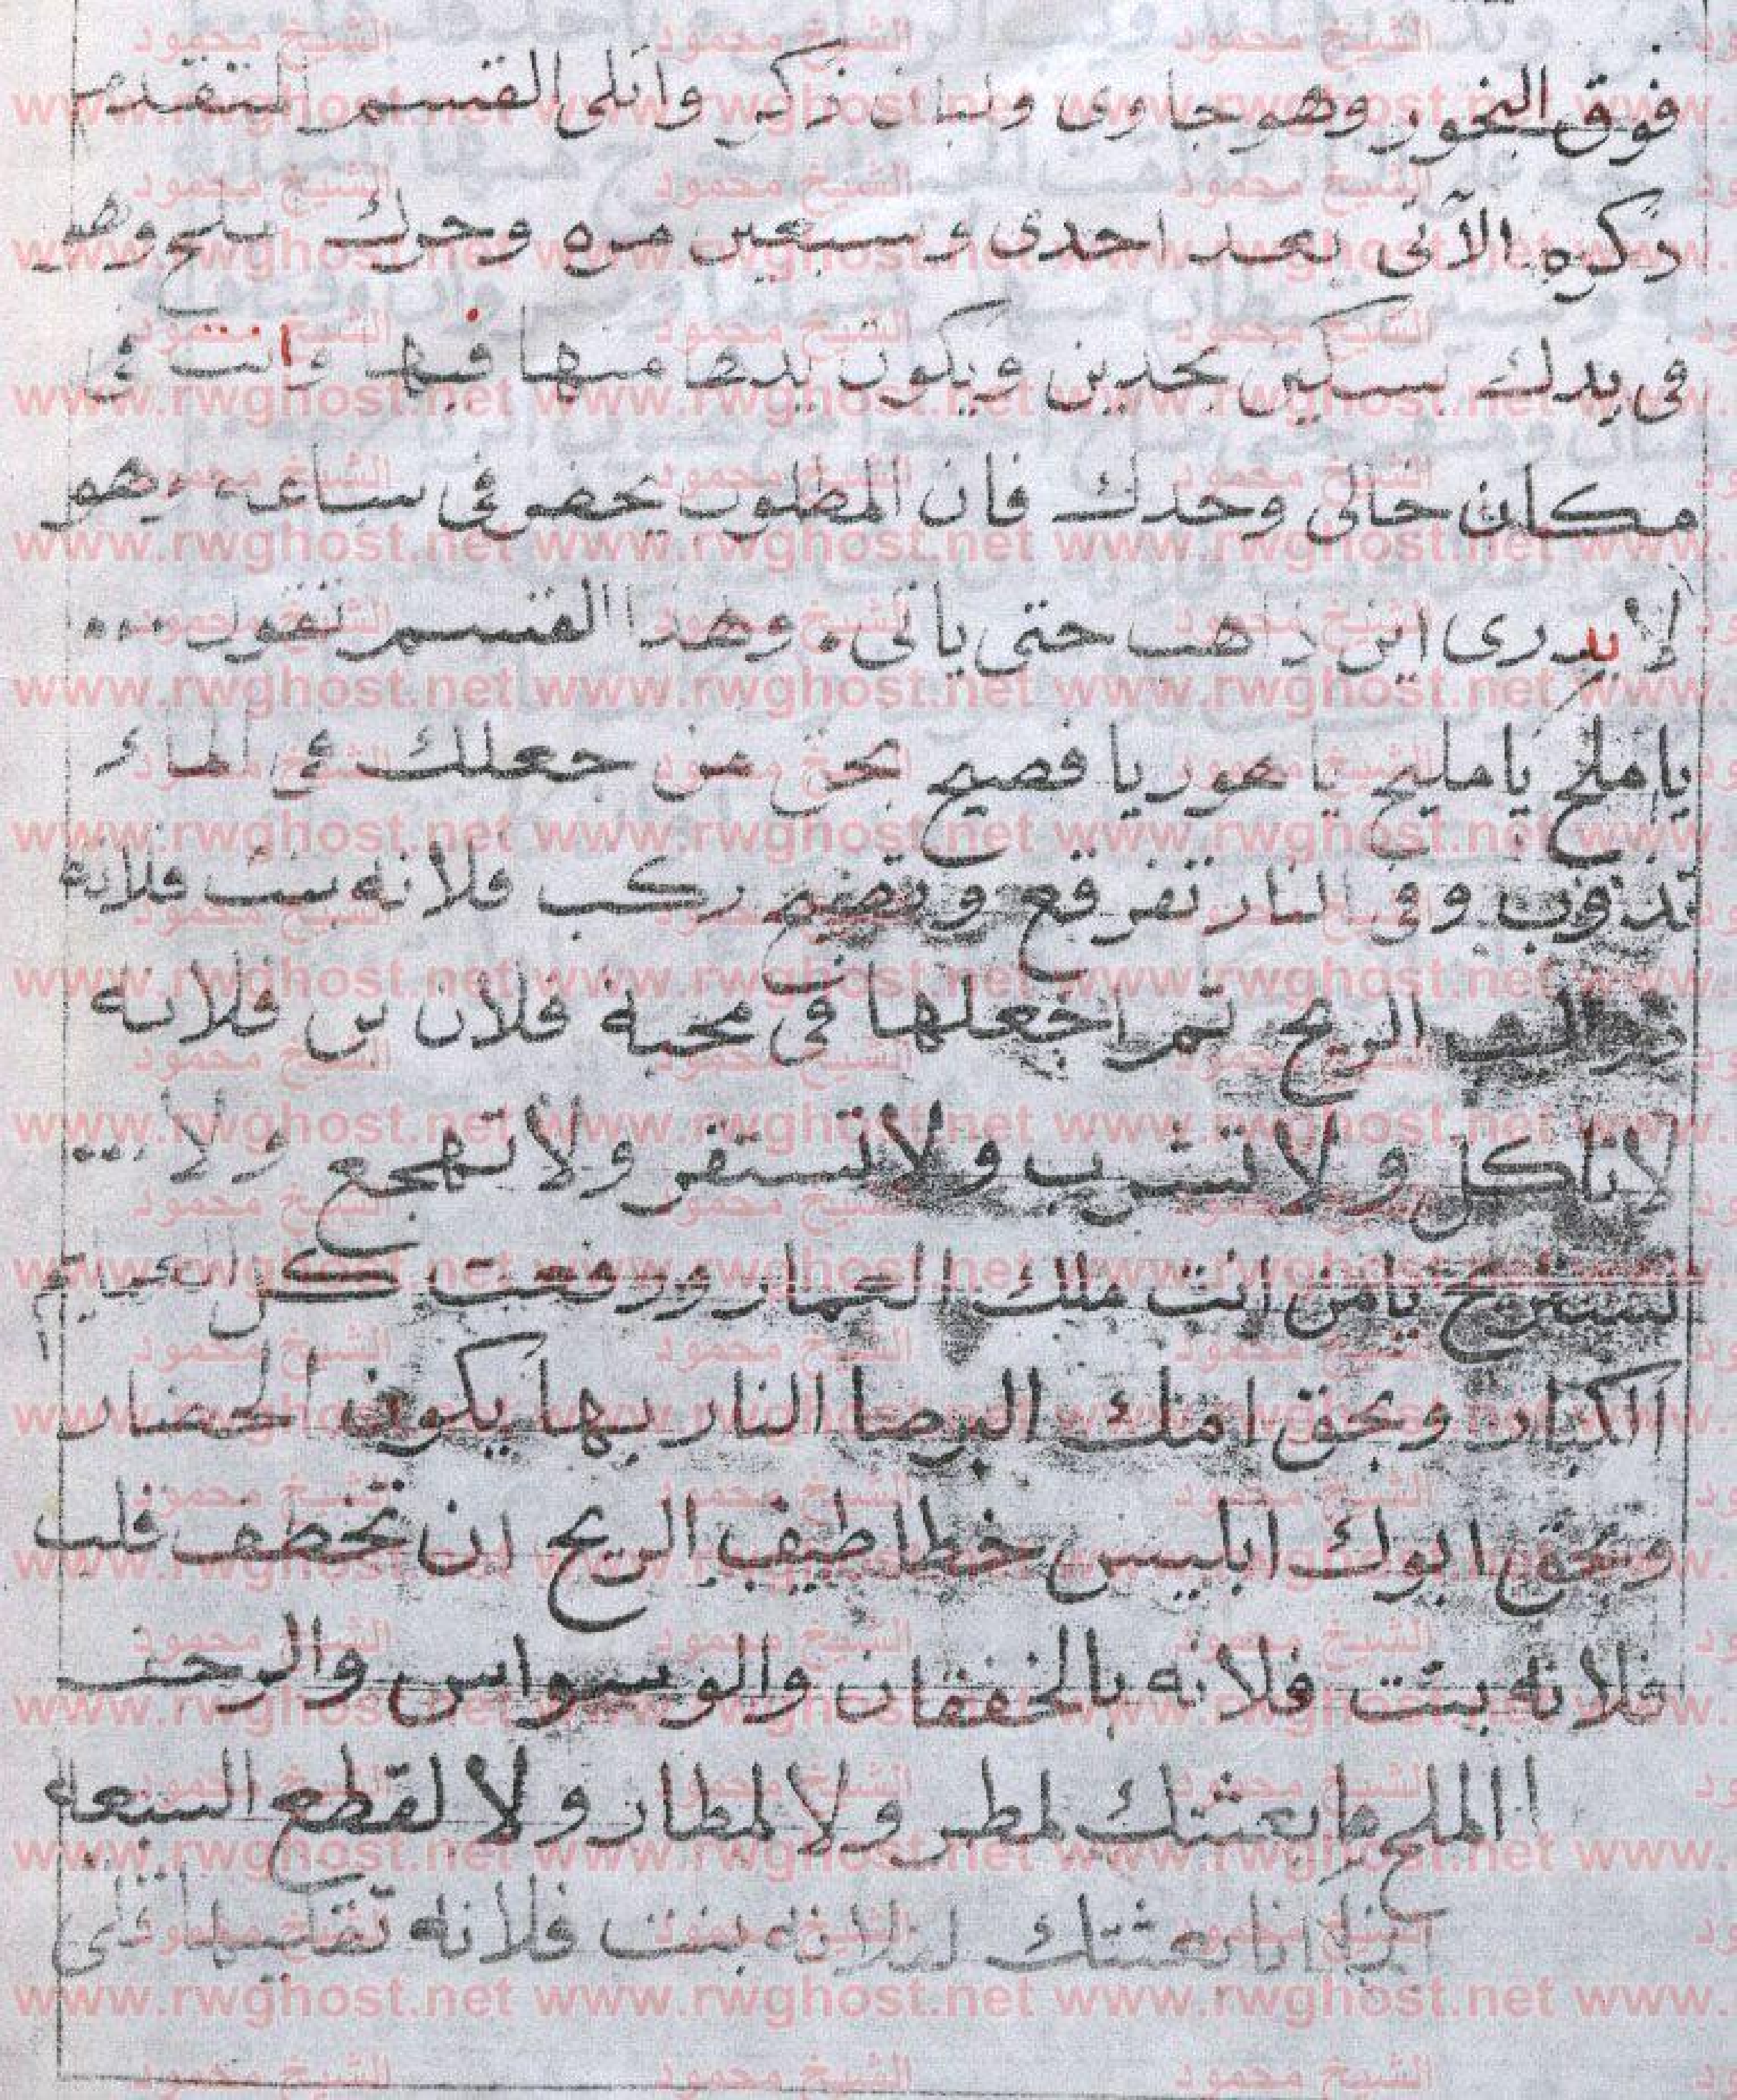 فوق البخور وهو جاوى ولبان ذكر واتلى القسم المتقدم
ذكره الآتى بعد احدى وسبعين مره وحرك بلح وهو
فى يدك سكين بحدين ويكون يدها منها فيها وانت فى
مكان خالى وحدك فان المطلوب يحضر فى ساعه وهو
لا يدرى اين ذاهب حتى ياتى. وهذا القسم تقول ...
يا ملح يا مليح يا هور يا فصيح بحق من جعلك فى الماء
تذوب وفى النار تفرقع وتصيح ركب فلانه بنت فلانه
الريح ثم اجعلها فى محبة فلان بن فلانه
لا تاكل ولا تشرب ولا تستقر ولا تهجع ولا ...
تستريح يا من انت ملك العمار ورفعت كل
الكبار وبحق امك البرصا النار بها يكون الحضار
وبحق ابوك ابليس خطاطيف الريح ان تخطف قلب
فلانه بنت فلانه بالخفقان والوسواس والرجف
االملح ما بعثتك لمطر ولا لمطار ولا لقطع السبعه
انا بعثتك لفلانه بنت فلانه
www.rwghost.net
الشيخ محمود